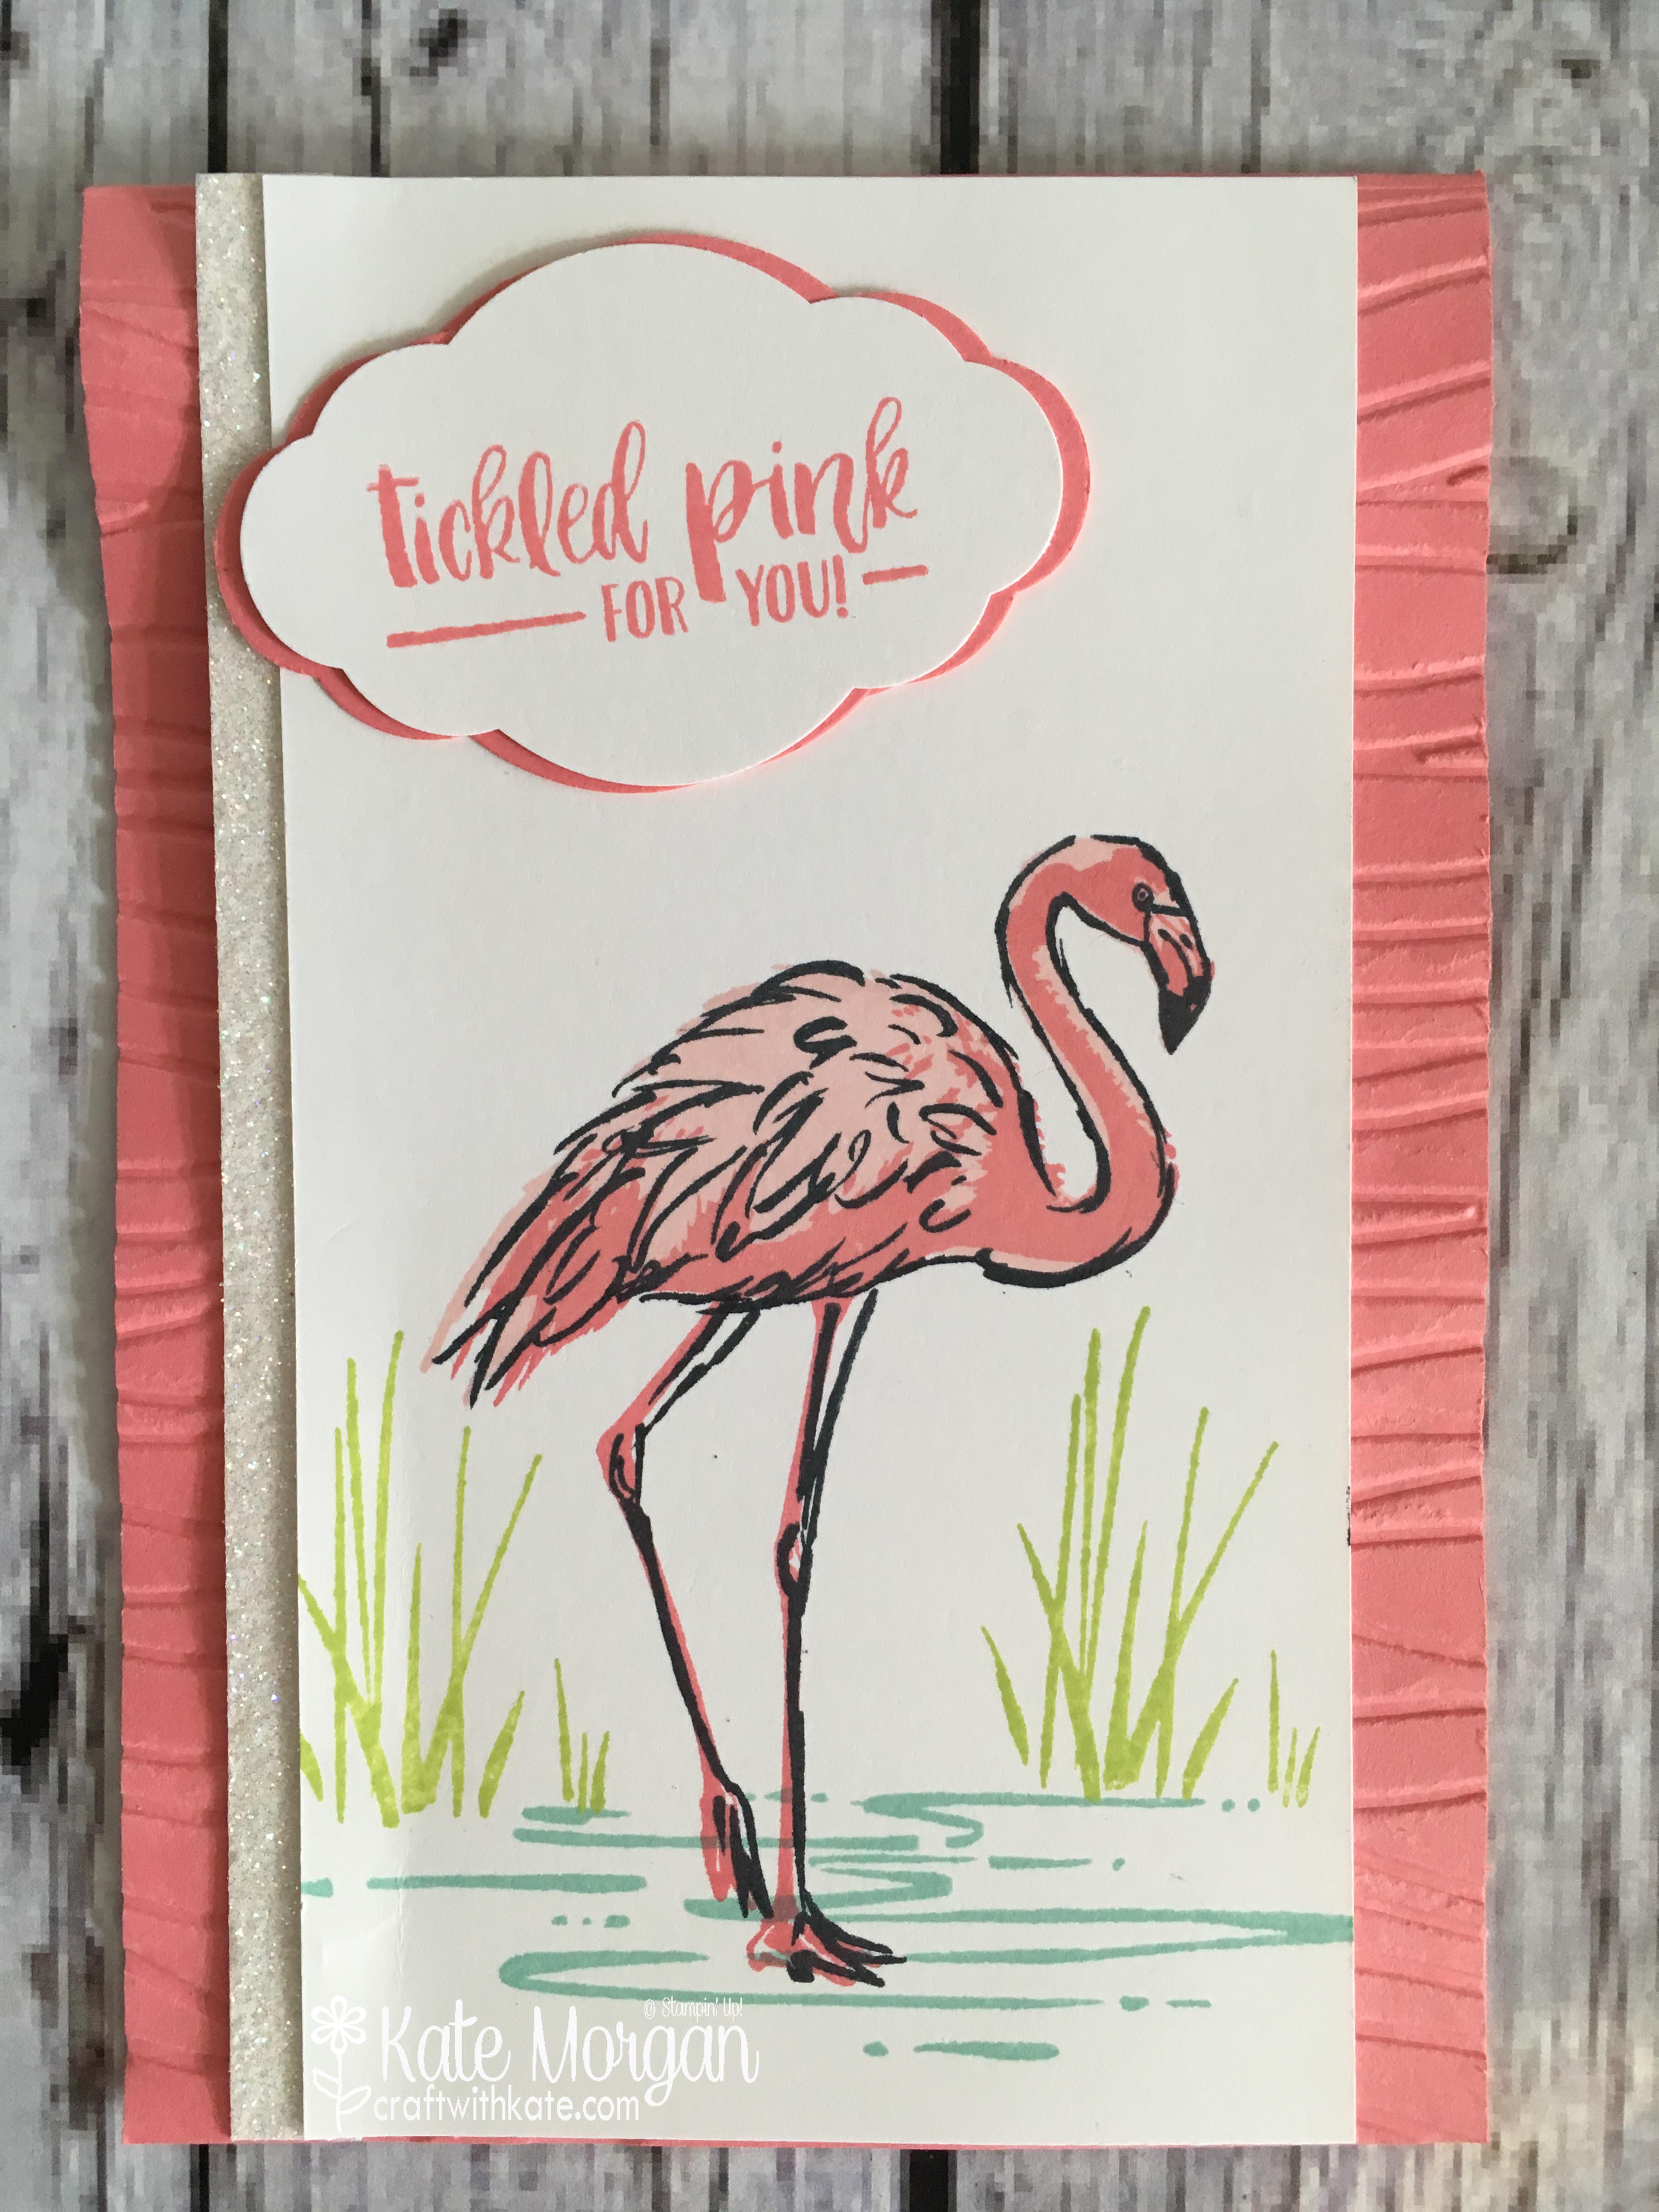 tickled pink
FOR YOU!
© Stampin' Up!
Kate Morgan
craftwithkate.com